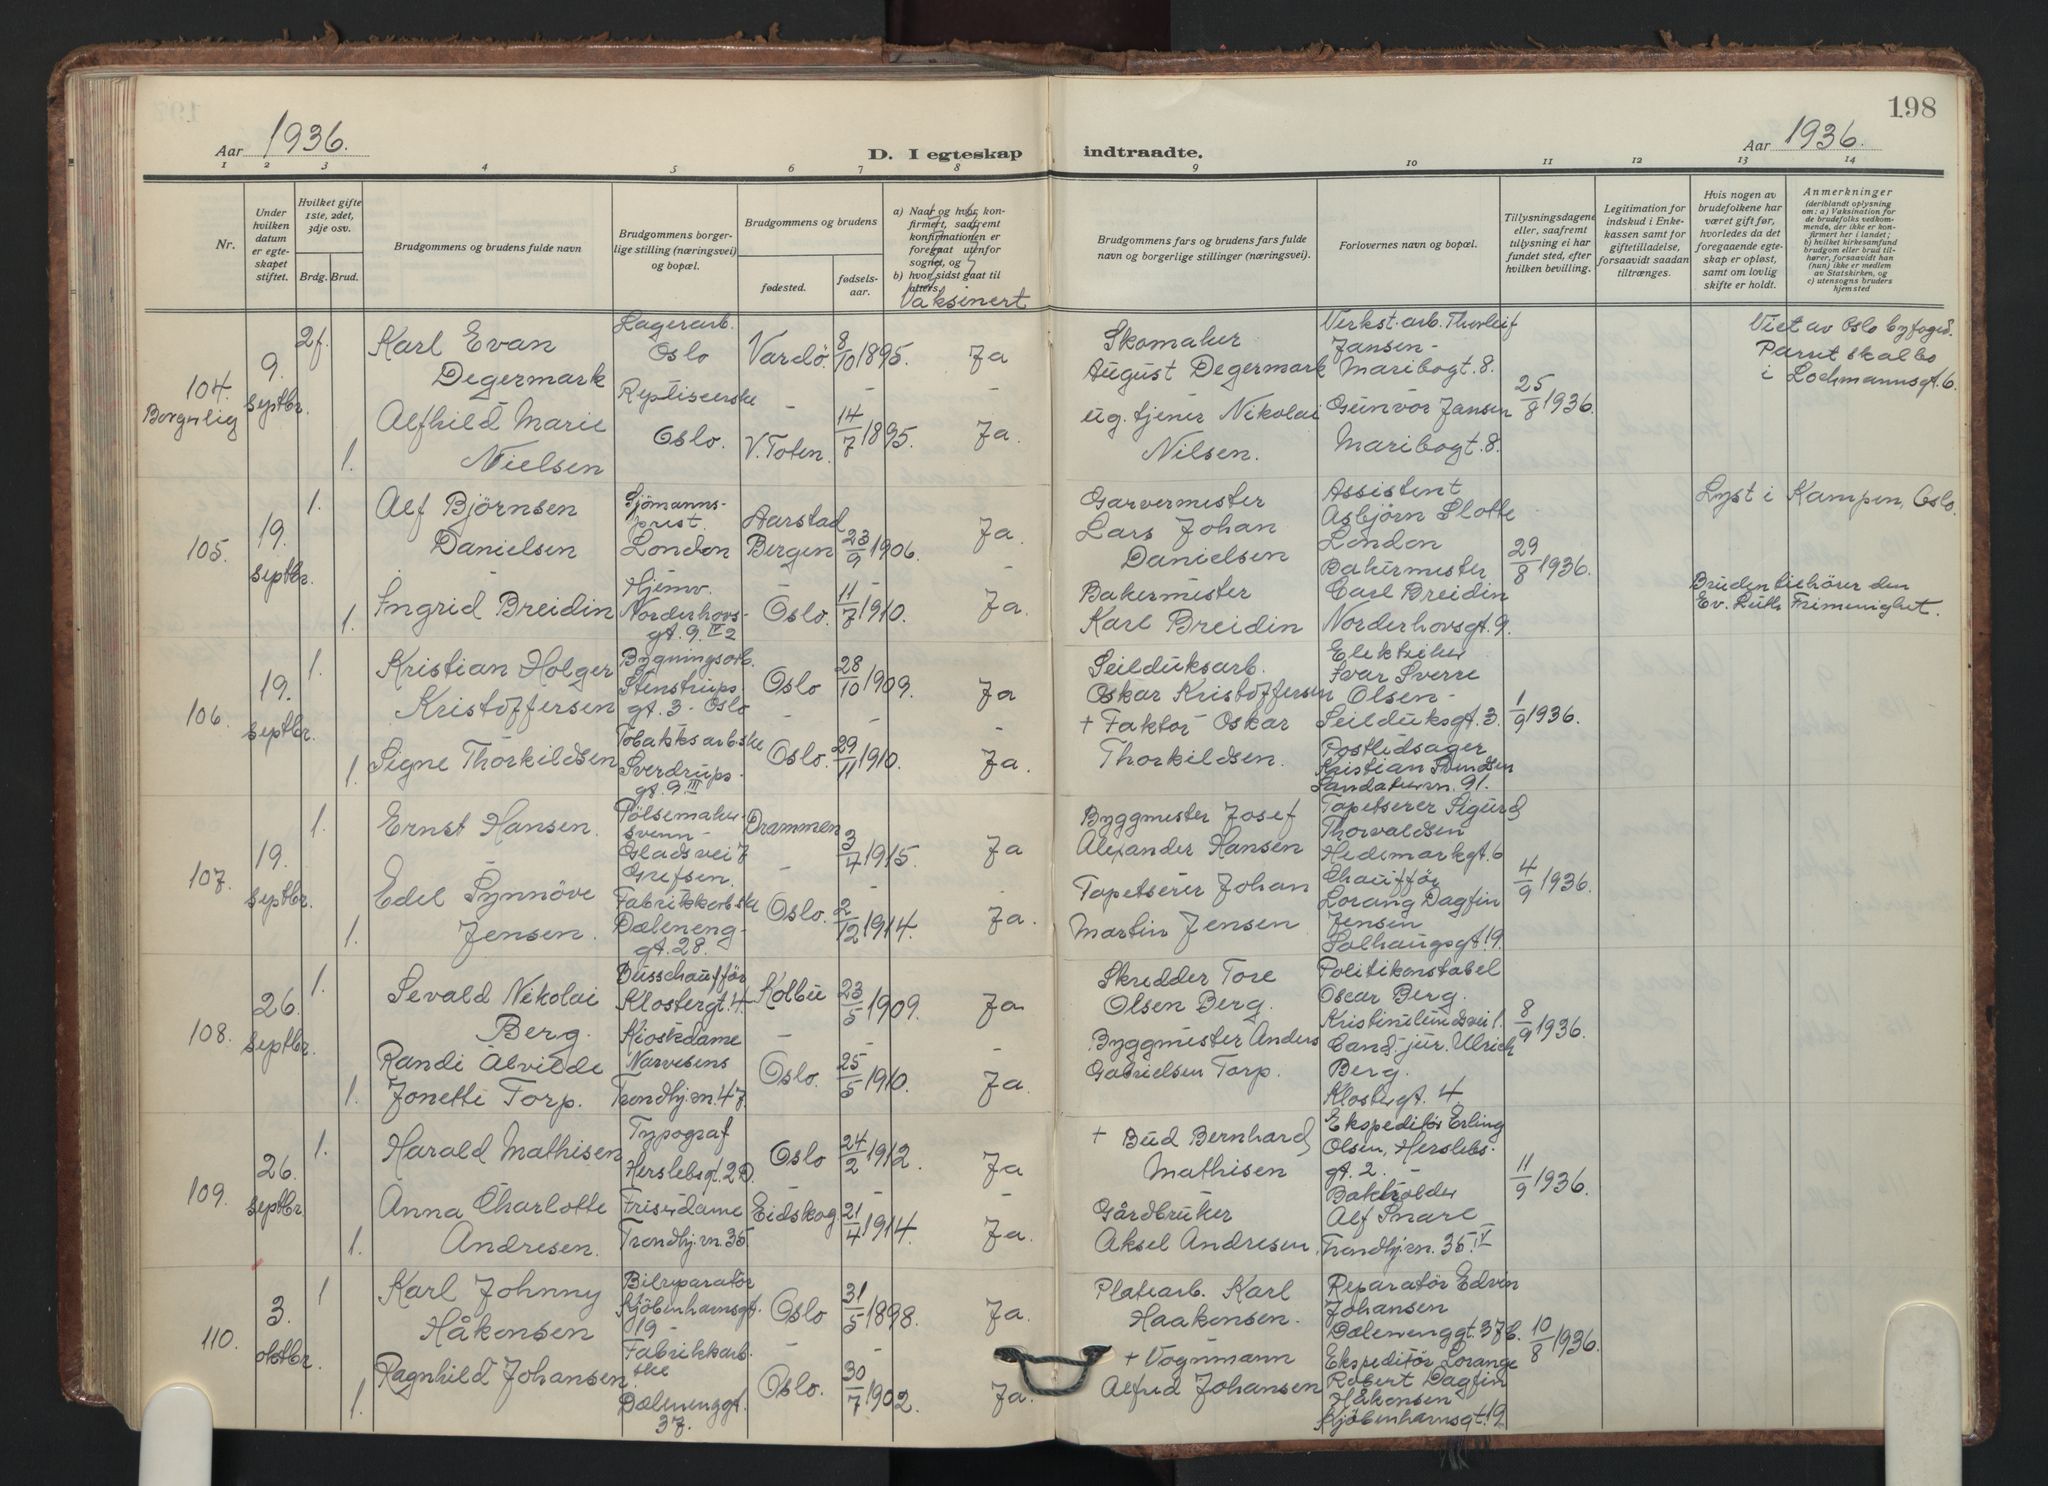 198
Aar 1936.
D. I egteskap
indtraadte.
Aar 1936.
1 2 3 4 5 6 7 8 9 10 11 12 13 14
Nr.
Under
hvilken
datum
er egte-
skapet
stiftet.
Hvilket gifte
1ste, 2det,
3dje osv.
Brdg. Brud.
Brudgommens og brudens fulde navn
Brudgommens borger-
lige stilling (næringsvei)
og bopæl.
Brudgommens og brudens
fødested.
fødsels-
aar.
a) Naar og hvor kon-
firmert, saafremt
konfirmationen er
foregaat utenfor
sognet, og
b) hvor sidst gaat til
alters.
Vaksinert
Brudgommens fars og brudens fars fulde
navn og borgerlige stillinger (næringsvei).
Forlovernes navn og bopæl.
Tillysningsdagene
eller, saafremt
tillysning ei har
fundet sted, efter
hvilken bevilling.
Legitimation for
indskud i Enke-
kassen samt for
giftetilladelse,
forsaavidt saadan
tiltrænges.
Hvis nogen av
brudefolkene har
været gift før,
hvorledes da det
foregaaende egte-
skap er opløst,
samt om lovlig
skifte er holdt.
Anmerkninger
(deriblandt oplysning
om: a) Vaksination for
de brudefolks vedkom-
mende, der ikke er kon-
firmert her i landet;
b) hvilket kirkesamfund
brudgom eller brud til-
hører, forsaavidt han
(hun) ikke er medlem
av Statskirken, og
c) utensogns bruders
hjemsted
104.
Borgerlig
9.
septbr.
2f.
1.
Karl Evan
Degermark
Alfhild Marie
Nielsen
Lagerarb.
Oslo
Oslo.
Vardö.
V. Toten.
8/10 1895.
14/7 1895.
Ja
Ja.
Skomaker
August Degermark
ug. tjener Nikolai
Nilsen.
Verkst. arb. Thorleif
Jansen-
Maribogt. 8.
Gunvor Jansen
Maribogt. 8.
25/8 1936.
Viet av Oslo byfogd.
Parret skal bo
i Lochmannsgt. 6.
105.
19.
septbr.
1.
1.
Alf Björnsen
Danielsen
Ingrid Breidin
Sjömanns-
prest.
London
Hjemv.
Norderhovs-
gt. 9. IV 2
Aarstad
Bergen
Oslo.
23/9 1906.
11/7 1910.
Ja.
Ja.
Garvermester
Lars Johan
Danielsen
Bakermester
Karl Breidin
Assistent
Asbjörn Slotte
London
Bakermester
Carl Breidin
Norderhovsgt. 9.
29/8 1936.
Lyst i Kampen, Oslo.
Bruden tilhører den
Ev. Luth. Frimenighet.
106.
19.
septbr.
1.
1.
Kristian Holger
Kristoffersen
Signe Thorkildsen
Bygningsarb.
Stenstrups-
gt. 3 - Oslo
Tobakksarbske
Sverdrups-
gt. 9 III
Oslo
Oslo.
28/10 1909.
29/11 1910.
Ja
Ja.
Seilduksarb.
Oskar Kristoffersen
+ Faktor Oskar
Thorkildsen.
Elektriker
Ivar Sverre
Olsen -
Seilduksgt. 3.
Postledsager
Kristian Svendsen
Sandakervn. 91.
1/9 1936.
107.
19.
septbr.
1.
1.
Ernst Hansen.
Edel Synnöve
Jensen.
Pölsemaker
svenn -
Gladsvei 7
Grefsen.
Fabrikkarbske
Dæleneng-
gt. 28.
Drammen
Oslo.
3/4 1915.
2/12 1914.
Ja
Ja.
Byggmester Josef
Alexander Hansen
Tapetserer Johan
Martin Jensen
Tapetserer Sigurd
Thorvaldsen
Hedemarkgt. 6
Chauffør
Lorang Dagfin
Jensen
Solhaugsgt. 19.
4/9 1936.
108.
26.
septbr.
1.
1.
Sevald Nikolai
Berg.
Randi Alvilde
Jonetti Torp.
Busschauffør
Klostergt. 4.
Kioskdame
Narvesens
Trondhj.vn. 47.
Kolbu
Oslo.
23/5 1909.
25/5 1910.
Ja
Ja.
Skredder Tore
Olsen Berg.
Byggmester Anders
Gabrielsen Torp.
Politikonstabel
Oscar Berg.
Kristinelundsvei 1.
Cand. jur. Ulrich
Berg.
Klostergt. 4.
8/9 1936.
109.
26.
septbr.
1.
1.
Harald Mathisen
Anna Charlotte
Andresen.
Typograf
Herslebsgt. 2D.
Friserdame
Trondhj.vn. 35.
Oslo
Eidskog.
24/2 1912.
21/4 1914.
Ja
Ja.
+ Bud Bernhard
Mathisen
Gårdbruker
Aksel Andresen.
Ekspeditör Erling
Olsen, Herslebs-
gt. 2. -
Alf Snare
Trondhj.vn. 35. IV
11/9 1936.
110.
3.
oktbr.
1
1.
Karl Johnny
Håkonsen
Ragnhild Johansen.
Bilreparatör
Kjöbenhavnsgt.
19 -
Fabrikkarb-
ske
Dælenenggt.
37.
Oslo
Oslo.
31/5 1898.
30/7 1902.
Ja.
Ja.
Platearb. Karl
Haakonsen.
+ Vognmann
Alfred Johansen
Reparatör Edvin
Johansen
Dælenenggt. 37b.
Ekspeditör Lorange
Robert Dagfin
Håkonsen
Kjöbenhavnsgt. 19
10/8 1936.